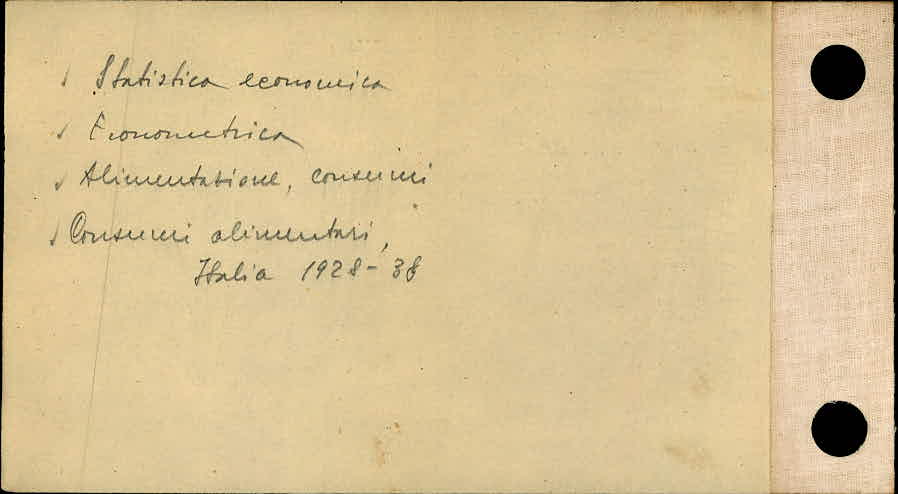 √ Statistica economica
√ Econometrica
√ Alimentazione, consumi
√ Consumi alimentari,
Italia 1928-38